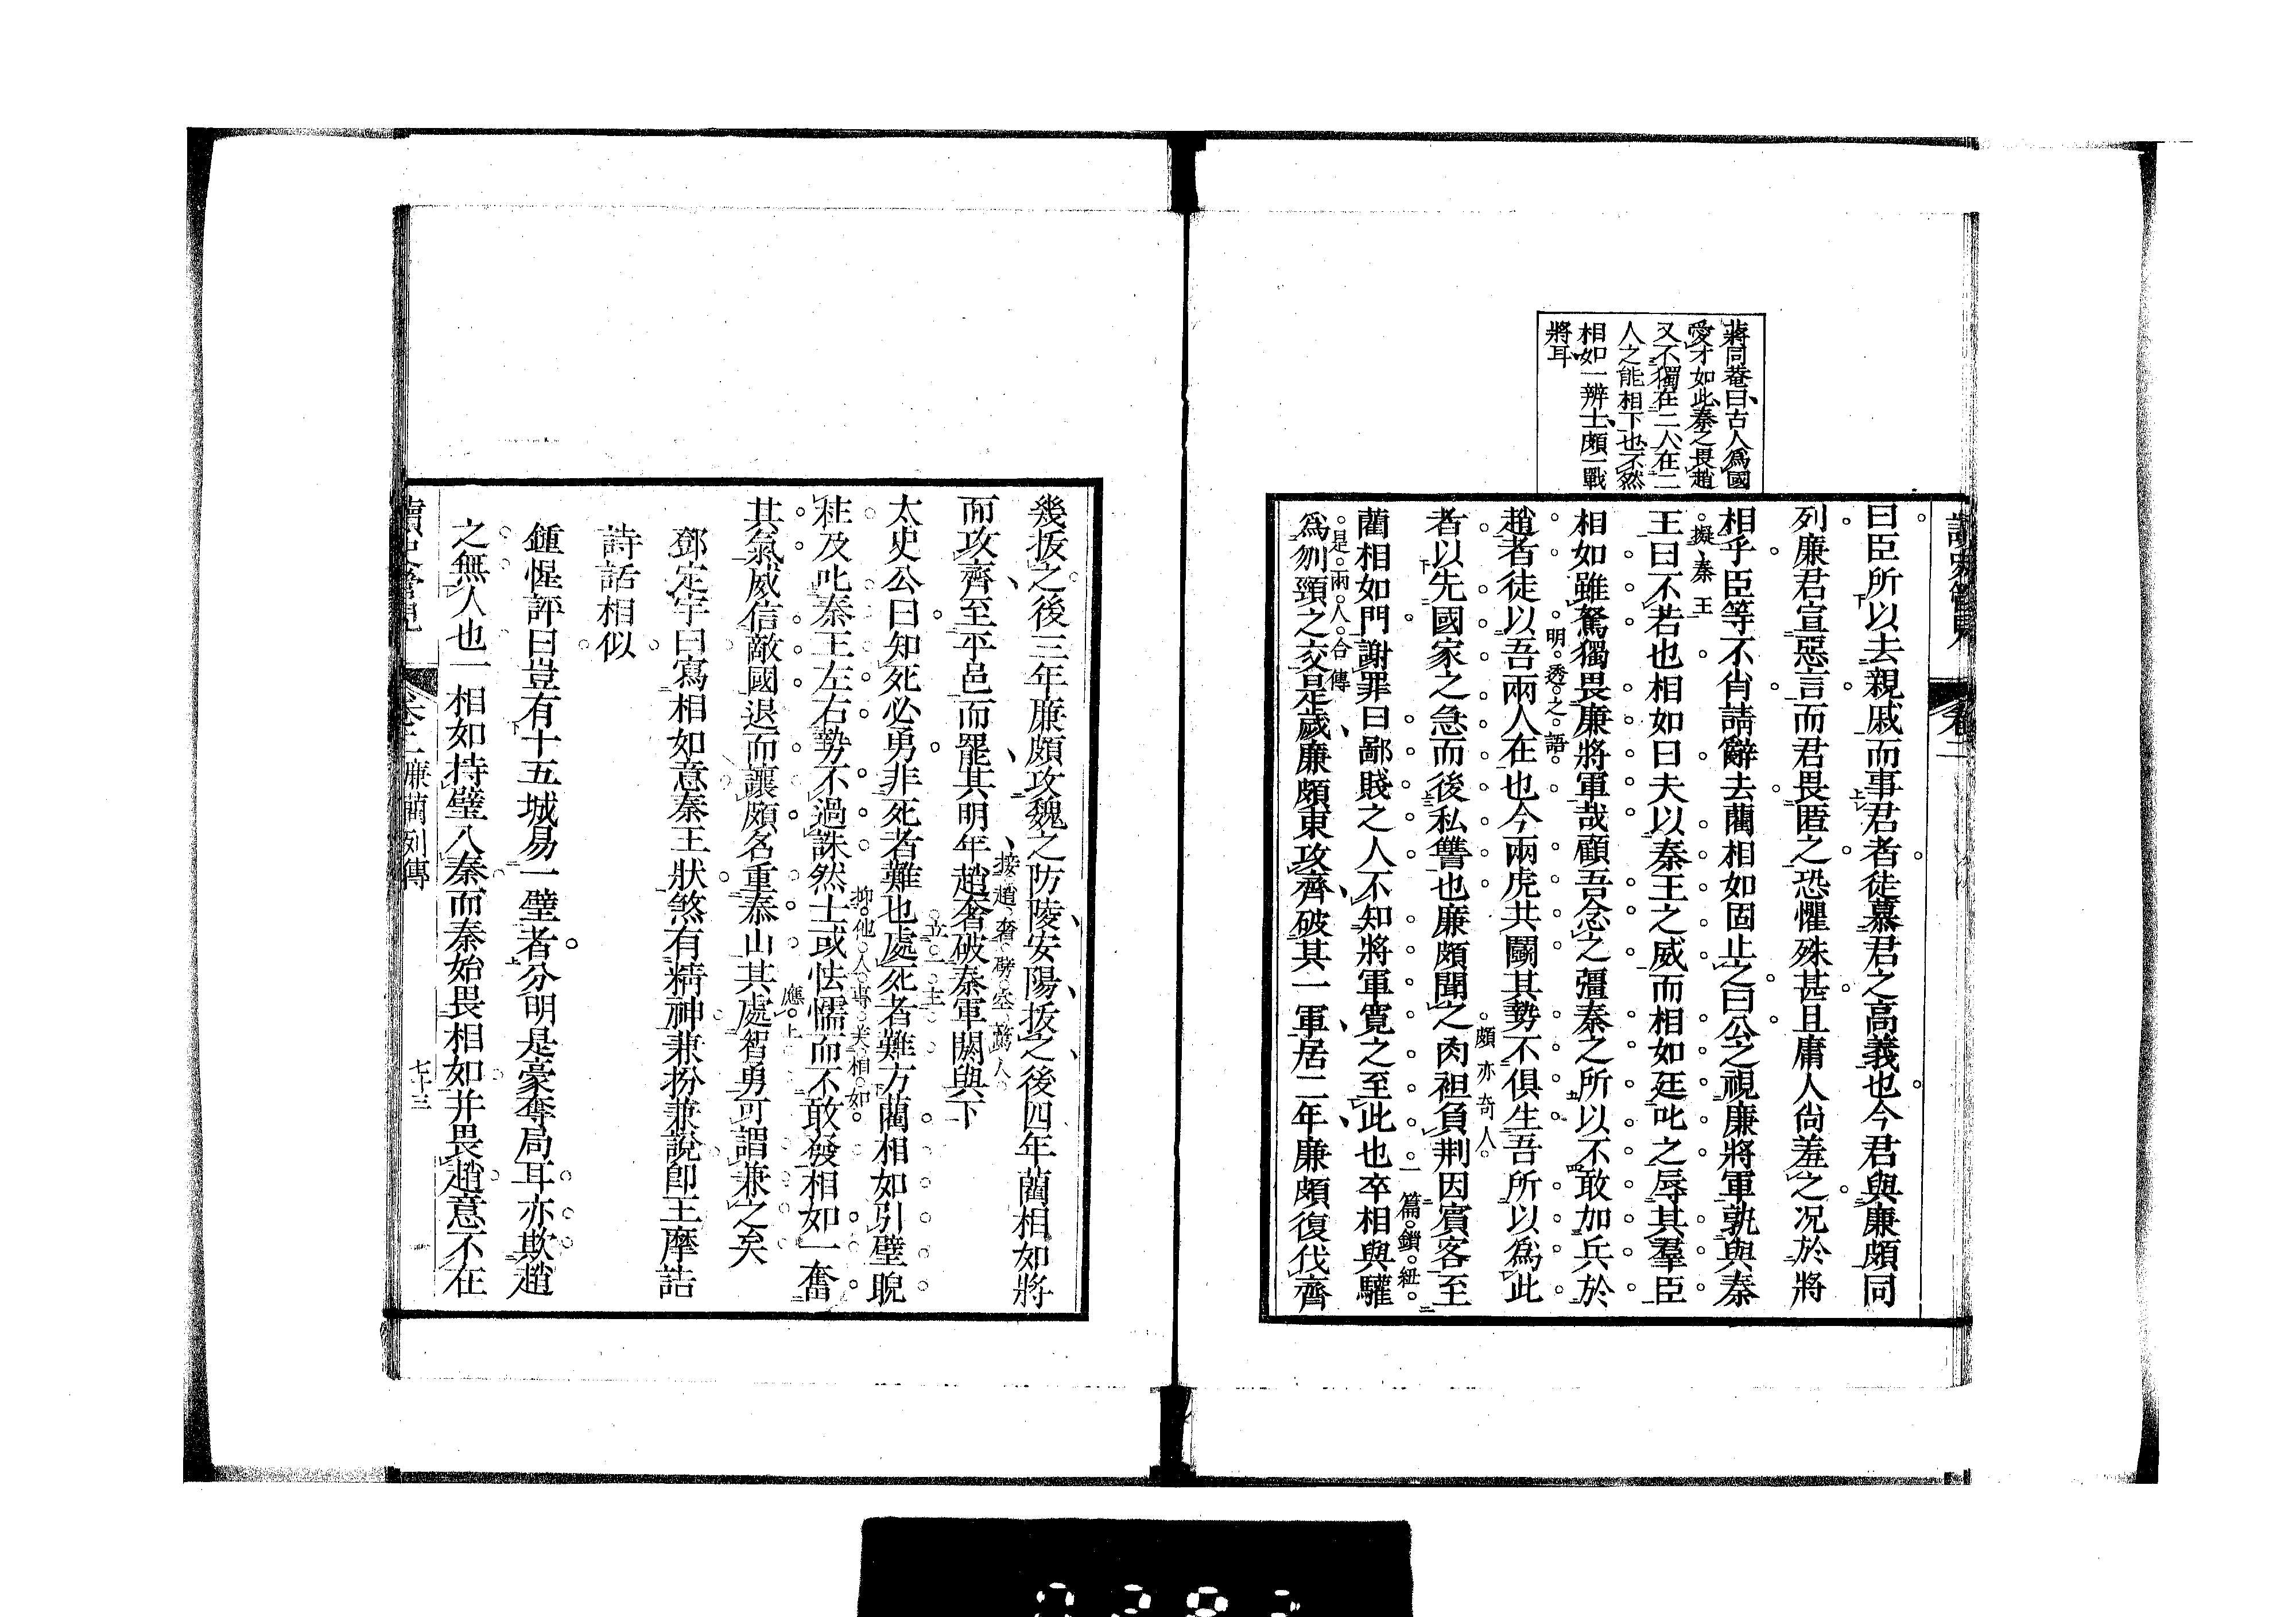 讀史管見
卷二
蔣同菴曰古人為國
愛才如此秦之畏趙
又不獨在二人在二
人之能相下也不然
相如一辨士頗一戰
將耳
曰臣所以去親戚而事君者徒慕君之高義也今君與廉頗同
列廉君宣惡言而君畏匿之恐懼殊甚且庸人尚羞之况於將
相乎臣等不肖請辭去藺相如固止之曰公之視廉將軍孰與秦
擬秦王
王曰不若也相如曰夫以秦王之威而相如廷叱之辱其羣臣
相如雖駑獨畏廉將軍哉顧吾念之彊秦之所以不敢加兵於
明透之語
趙者徒以吾兩人在也今兩虎共鬭其勢不俱生吾所以為此
頗亦奇人
者以先國家之急而後私讐也廉頗聞之肉袒負荆因賓客至
一篇鎖紐
藺相如門謝罪曰鄙賤之人不知將軍寬之至此也卒相與驩
是兩人合傳
為刎頸之交是歲廉頗東攻齊破其一軍居二年廉頗復伐齊
幾拔之後三年廉頗攻魏之防陵安陽拔之後四年藺相如將
按趙奢劈空驚人
而攻齊至平邑而罷其明年趙奢破秦軍閼與下
立一主
太史公曰知死必勇非死者難也處死者難方藺相如引璧睨
抑他人專美相如
柱及叱秦王左右勢不過誅然士或怯懦而不敢發相如一奮
應上
其氣威信敵國退而讓頗名重泰山其處智勇可謂兼之矣
鄧定宇曰寫相如意秦王狀煞有精神兼扮兼說卽王摩詰
詩話相似
鍾惺評曰豈有十五城易一璧者分明是豪奪局耳亦欺趙
之無人也一相如持璧入秦而秦始畏相如并畏趙意不在
讀史管見
卷二廉藺列傳
七十三